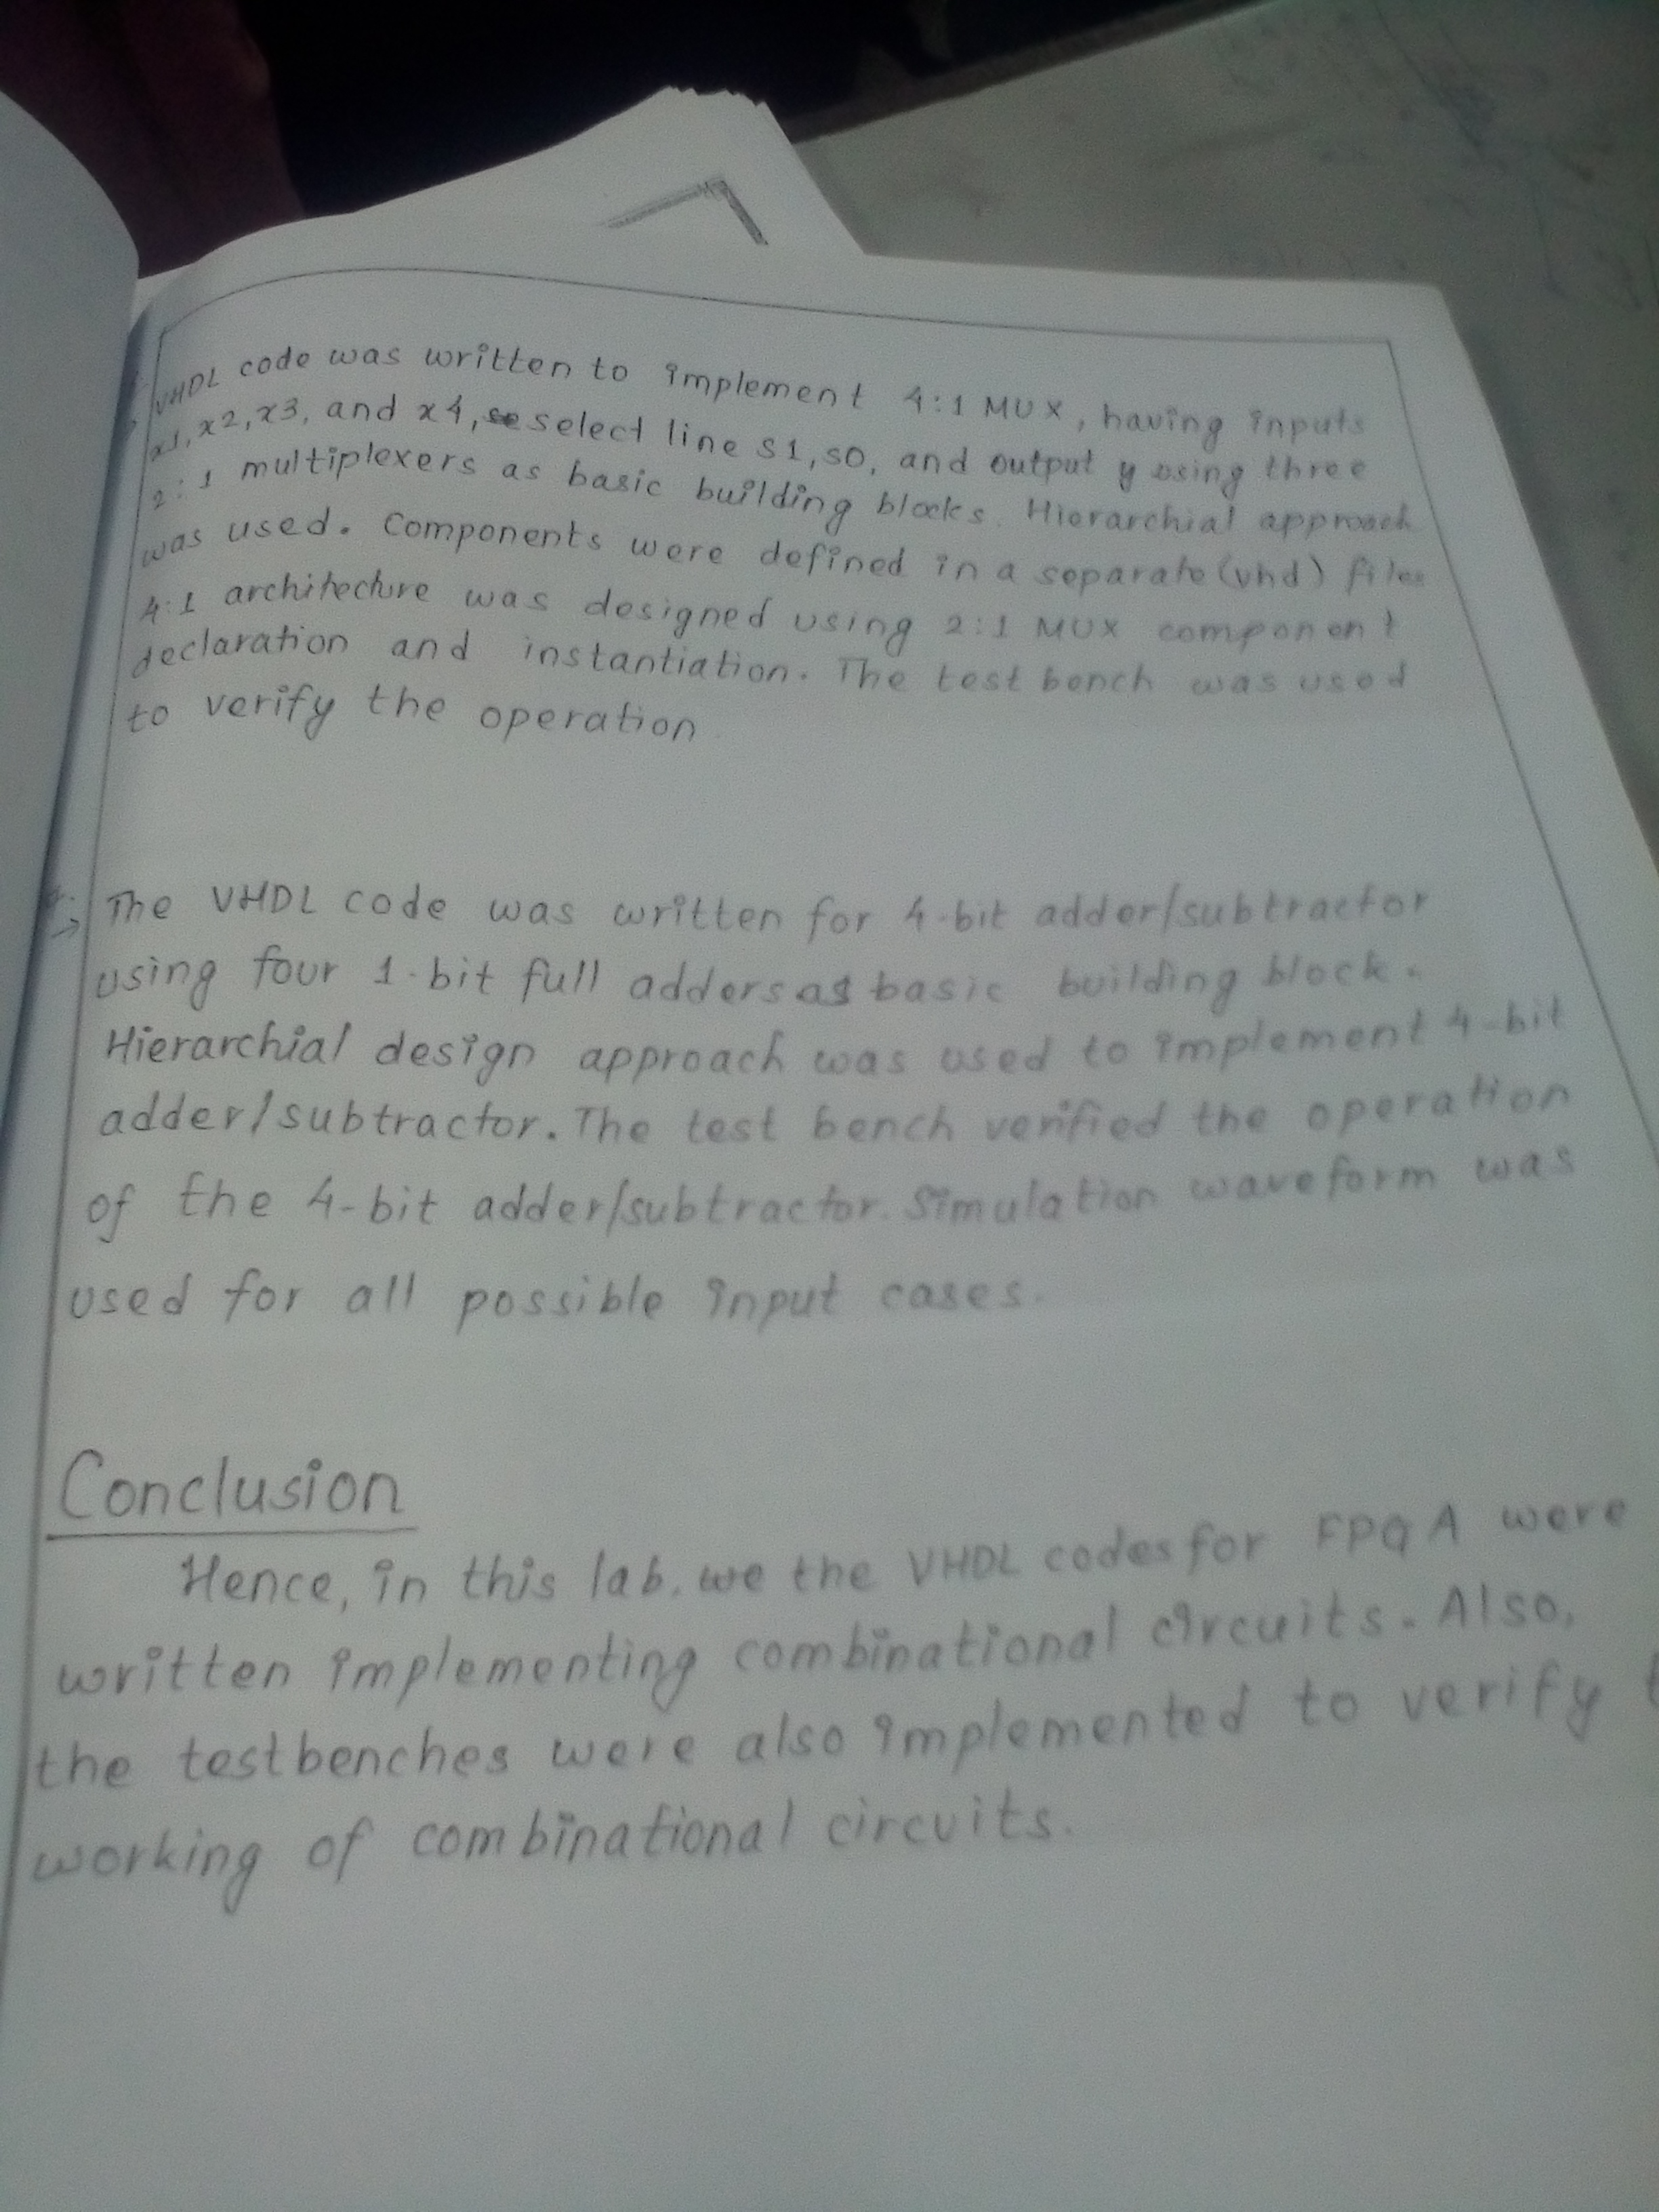 VHDL code was written to implement 4:1 MUX, having inputs
x1, x2, x3, and x4, se select line S1, S0, and output y using three
2:1 multiplexers as basic building blocks. Hierarchial approach
was used. Components were defined in a separate (vhd) files
4:1 architecture was designed using 2:1 MUX component
declaration and instantiation. The test bench was used
to verify the operation
→ The VHDL code was written for 4-bit adder/subtractor
using four 1-bit full adders as basic building block.
Hierarchial design approach was used to implement 4-bit
adder/subtractor. The test bench verified the operation
of the 4-bit adder/subtractor. Simulation waveform was
used for all possible input cases.
Conclusion
Hence, in this lab, we the VHDL codes for FPGA were
written implementing combinational circuits. Also,
the testbenches were also implemented to verify
working of combinational circuits.